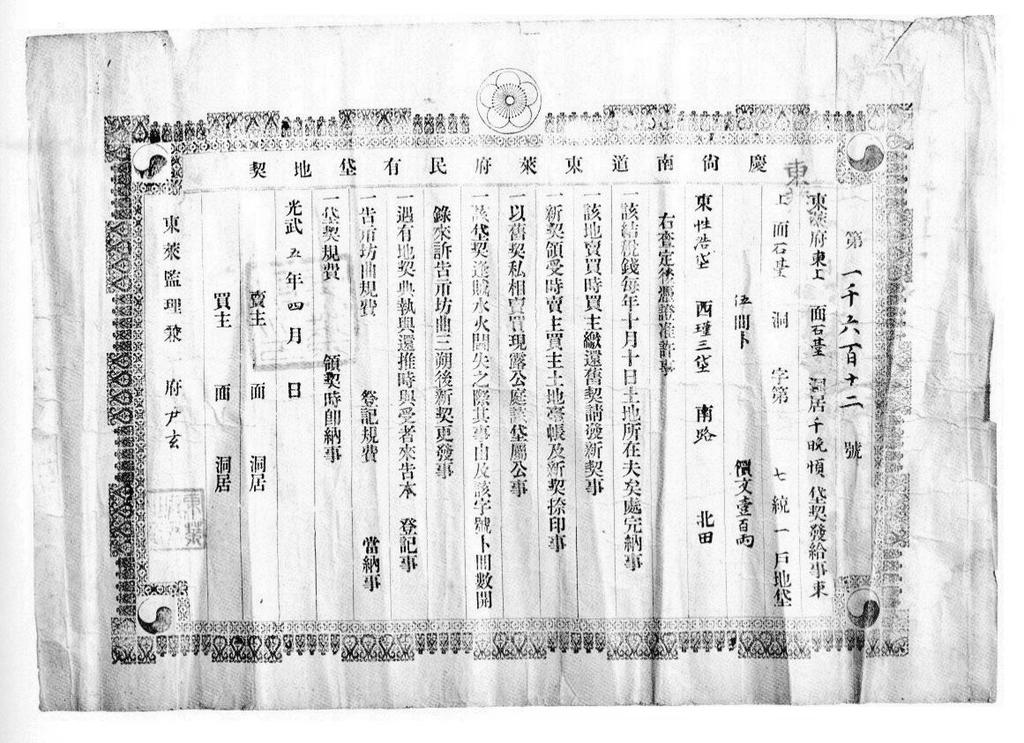 慶尙南道東萊府民有垈地契
第一千六百十二號
東萊府東上面石臺洞居千晩 垈契發給事東
上面石臺洞字第七統一戶地垈
伍間卜 價文壹百兩
東 垈 西 三垈 南路 北田
右査定後憑證准許事
一該結稅錢每年十月十日土地所在夫矣處完納事
一該地賣買時買主繳還舊契請發新契事
一新契領受時賣主買主土地臺帳及新契捺印事
一以舊契私相賣買現露公庭該垈屬公事
一該垈契逢賊水火閪失之際其事由及該字號卜間數開
錄來訴告示坊曲三朔後新契更發事
一遇有地契典執與還推時與受者來告本 登記事
一告示坊曲規費 登記規費 當納事
一垈契規費 領契時卽納事
光武五年四月 日
賣主 面 洞居
買主 面 洞居
東萊監理兼 府尹玄